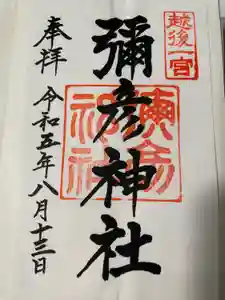 越後
一宮
彌彦神社
奉拝
令和五年八月十三日